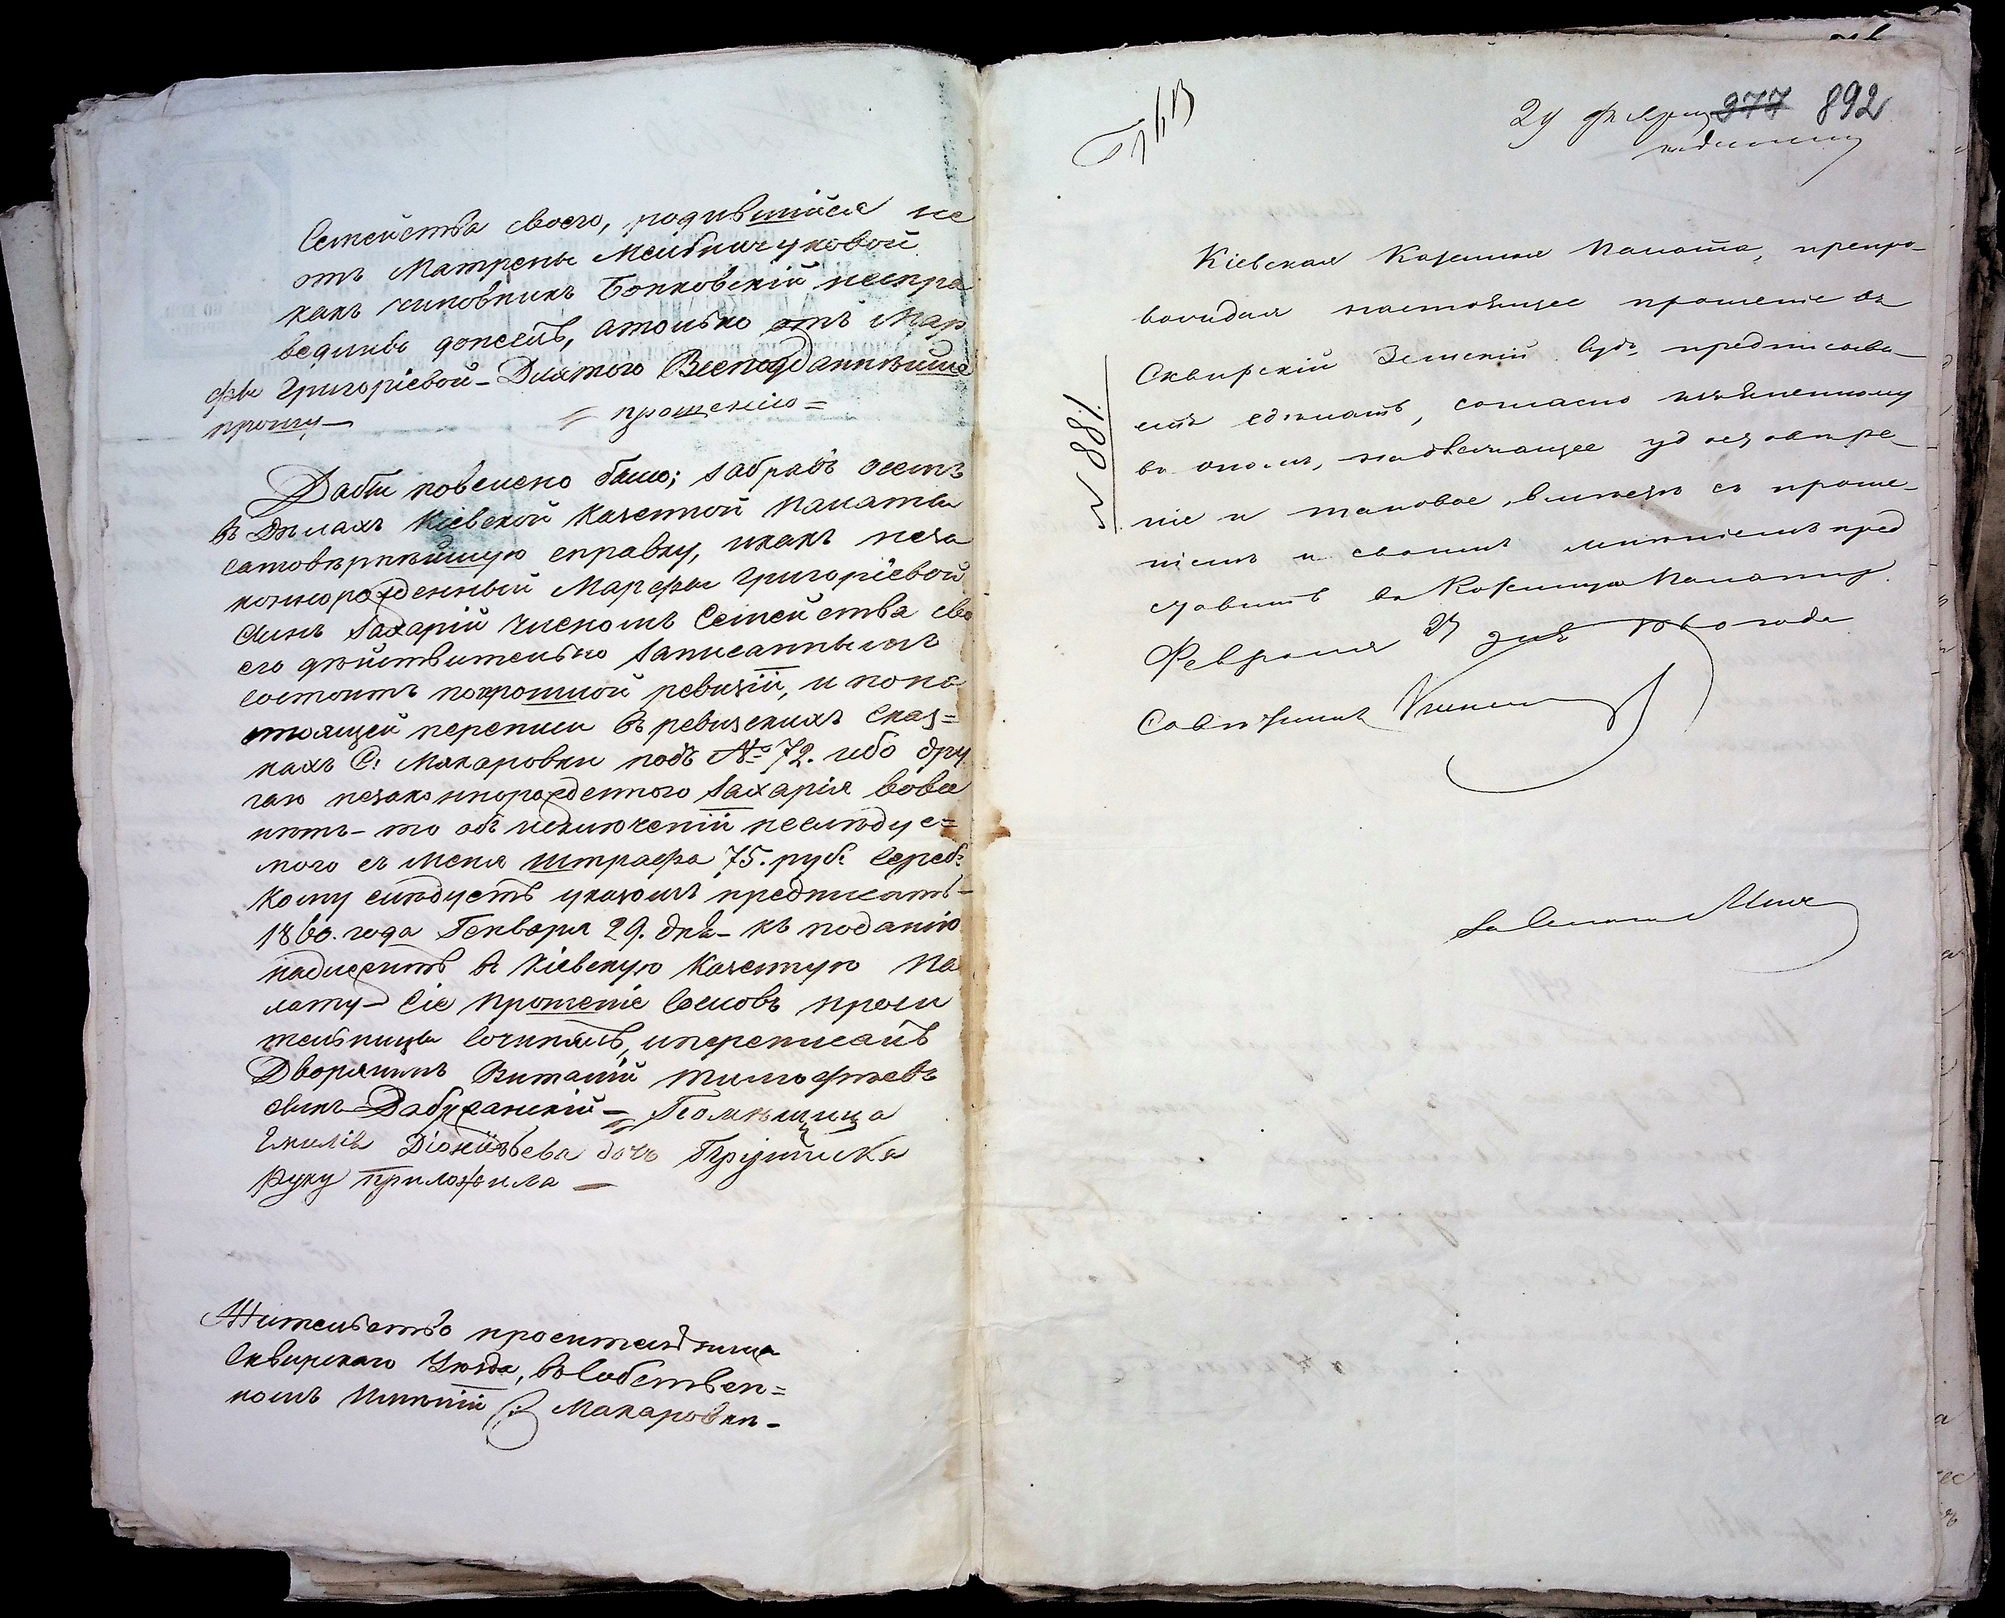 Семейства своего, родившійся не
отъ Матрены Мельничуковой
какъ чиновникъ Бонковскій неспра
ведливъ донесъ, атолько отъ Мар
фы Григоріевой – Длятого Всеподданнѣйше
прошу – = прошенію =
Дабы повелено было; забравъ остъ
въ Дѣлахъ Кіевской Казенной Палаты
самовѣрнѣйшую справку, икакъ неза
коннорожденный Марефы Григоріевой
Сынъ Захарій числомъ Семейства сво
его дѣйствительно записаннымъ
состоитъ попрошлой ревизіи, и пона
стоящей переписи въ ревизскихъ Сказ=
кахъ С: Макаровки подъ № 72. ибо дру
гаго незаконнорожденного Захарія вовсе
нѣтъ – то объ исключеніи неслѣдуе=
мого съ меня штрафа 75. руб: Сереб:
кому слѣдуетъ указомъ предписать –
1860. года Генваря 29. дня – къ поданію
надлежитъ въ Кіевскую Казенную Па
лату – Сіе прошеніе Сословъ проси
тельницы Сочинялъ, ипереписалъ
Дворянинъ Виталій Тимофѣевъ
сынъ Дабужанскій – = Помѣщица
Емилія Діонизьева дочь
Руку приложила –
Жительство просительница
Сквирскаго Уѣзда, въ Собствен=
номъ Имѣніи С: Макаровки –
377 892
№ 881.
Кіевская Казенная Палата, препро–
вождая настоящее прошеніе въ
Сквирскій Земскій Судъ, предписыва–
етъ сдѣлать, согласно изъясненному
въ ономъ, надлежащее удостовѣре–
ніе и таковое, вмѣстѣ съ проше–
ніемъ и своимъ мнѣніемъ пред
ставить въ Казенную Палату.
Февраля дня 1860 года
Совѣтникъ